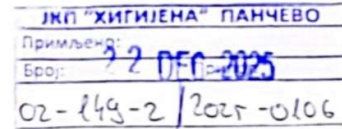 ЈКП "ХИГИЈЕНА" ПАНЧЕВО
Примљено:
Број: 22 DEC 2025
02-149-2 | 2025-0106